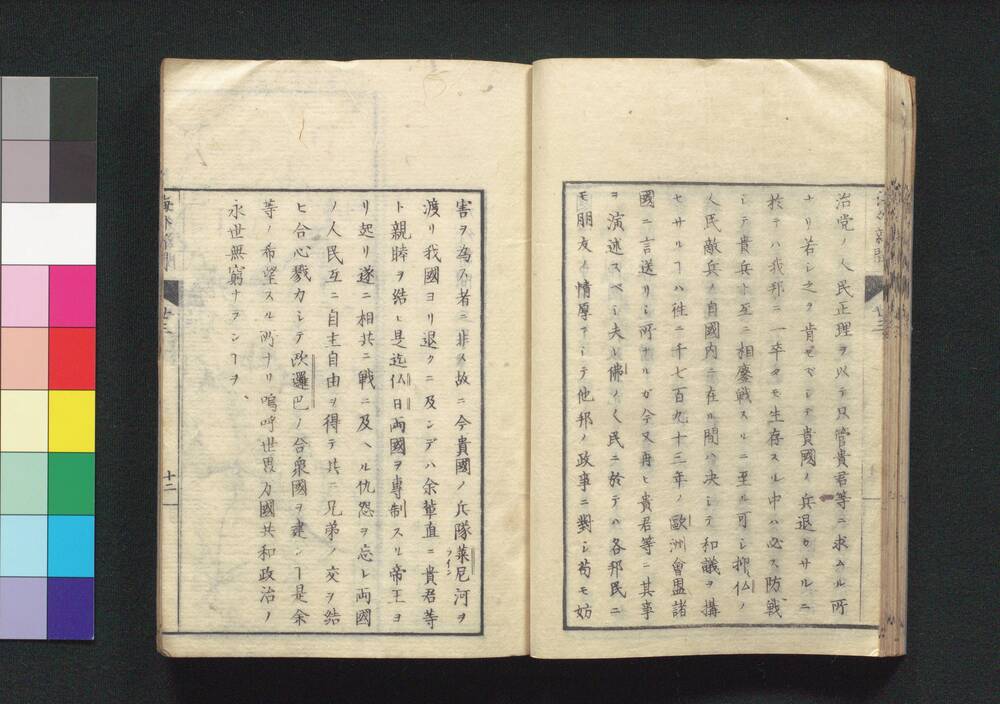 治党ノ人民正理ヲ以テ只管貴君等ニ求ムル所
ナリ若シ之ヲ肯ゼズシテ貴國ノ兵退カサルニ
於テハ我邦ニ一卒タモ生存スル中ハ必ス防戦
シテ貴兵ト互ニ相鏖戦スルニ至ル可シ抑仏ノ
人民敵兵ノ自國内ニ在ル間ハ决シテ和議ヲ講
セサルヿハ徃ニ千七百九十三年ノ歐洲會盟諸
國ニ言送リシ所ナルガ今又再ヒ貴君等ニ其事
ヲ演述スベシ夫レ佛ノ人民ニ於テハ各邦民ニ
モ朋友ノ情厚フシテ他邦ノ政事ニ對シ苟モ妨
害ヲ為ス者ニ非ス故ニ今貴國ノ兵隊莱尼河ヲ
ライン
渡リ我國ヨリ退クニ及ンデハ余輩直ニ貴君等
ト親睦ヲ結ヒ是迄仏日両國ヲ專制スル帝王ヨ
リ起リ遂ニ相共ニ戰ニ及ヘル仇怨ヲ忘レ両國
ノ人民互ニ自主自由ヲ得テ共ニ兄弟ノ交ヲ結
ヒ合心戮力シテ欧邏巴ノ合衆國ヲ建ンヿ是余
等ノ希望スル所ナリ嗚呼世界万國共和政治ノ
永世無窮ナランヿヲ、
廿三
十二